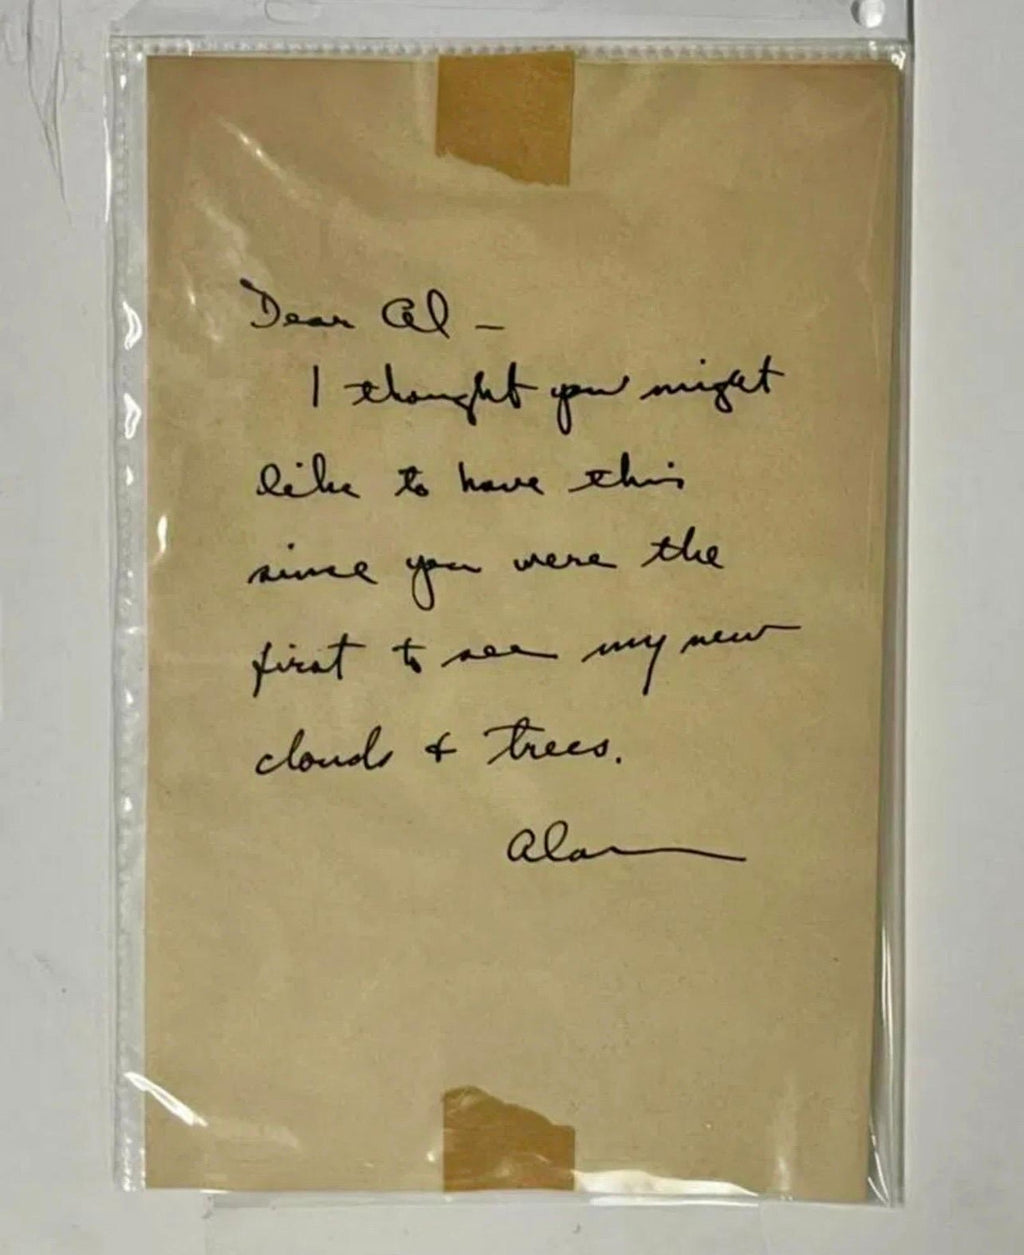 Dear Al –
I thought you might
like to have this
since you were the
first to see my new
clouds & trees.
Alan